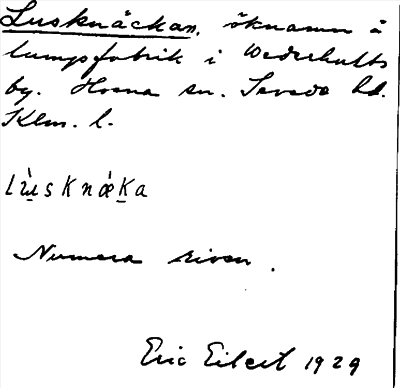 Lusknäckan, öknamn å
lumpfabrik i Wederhults
by. Hvena sn. Sevede hd.
Klm. l.
Lùsknǽka
Numera riven.
Eric Eilert 1929